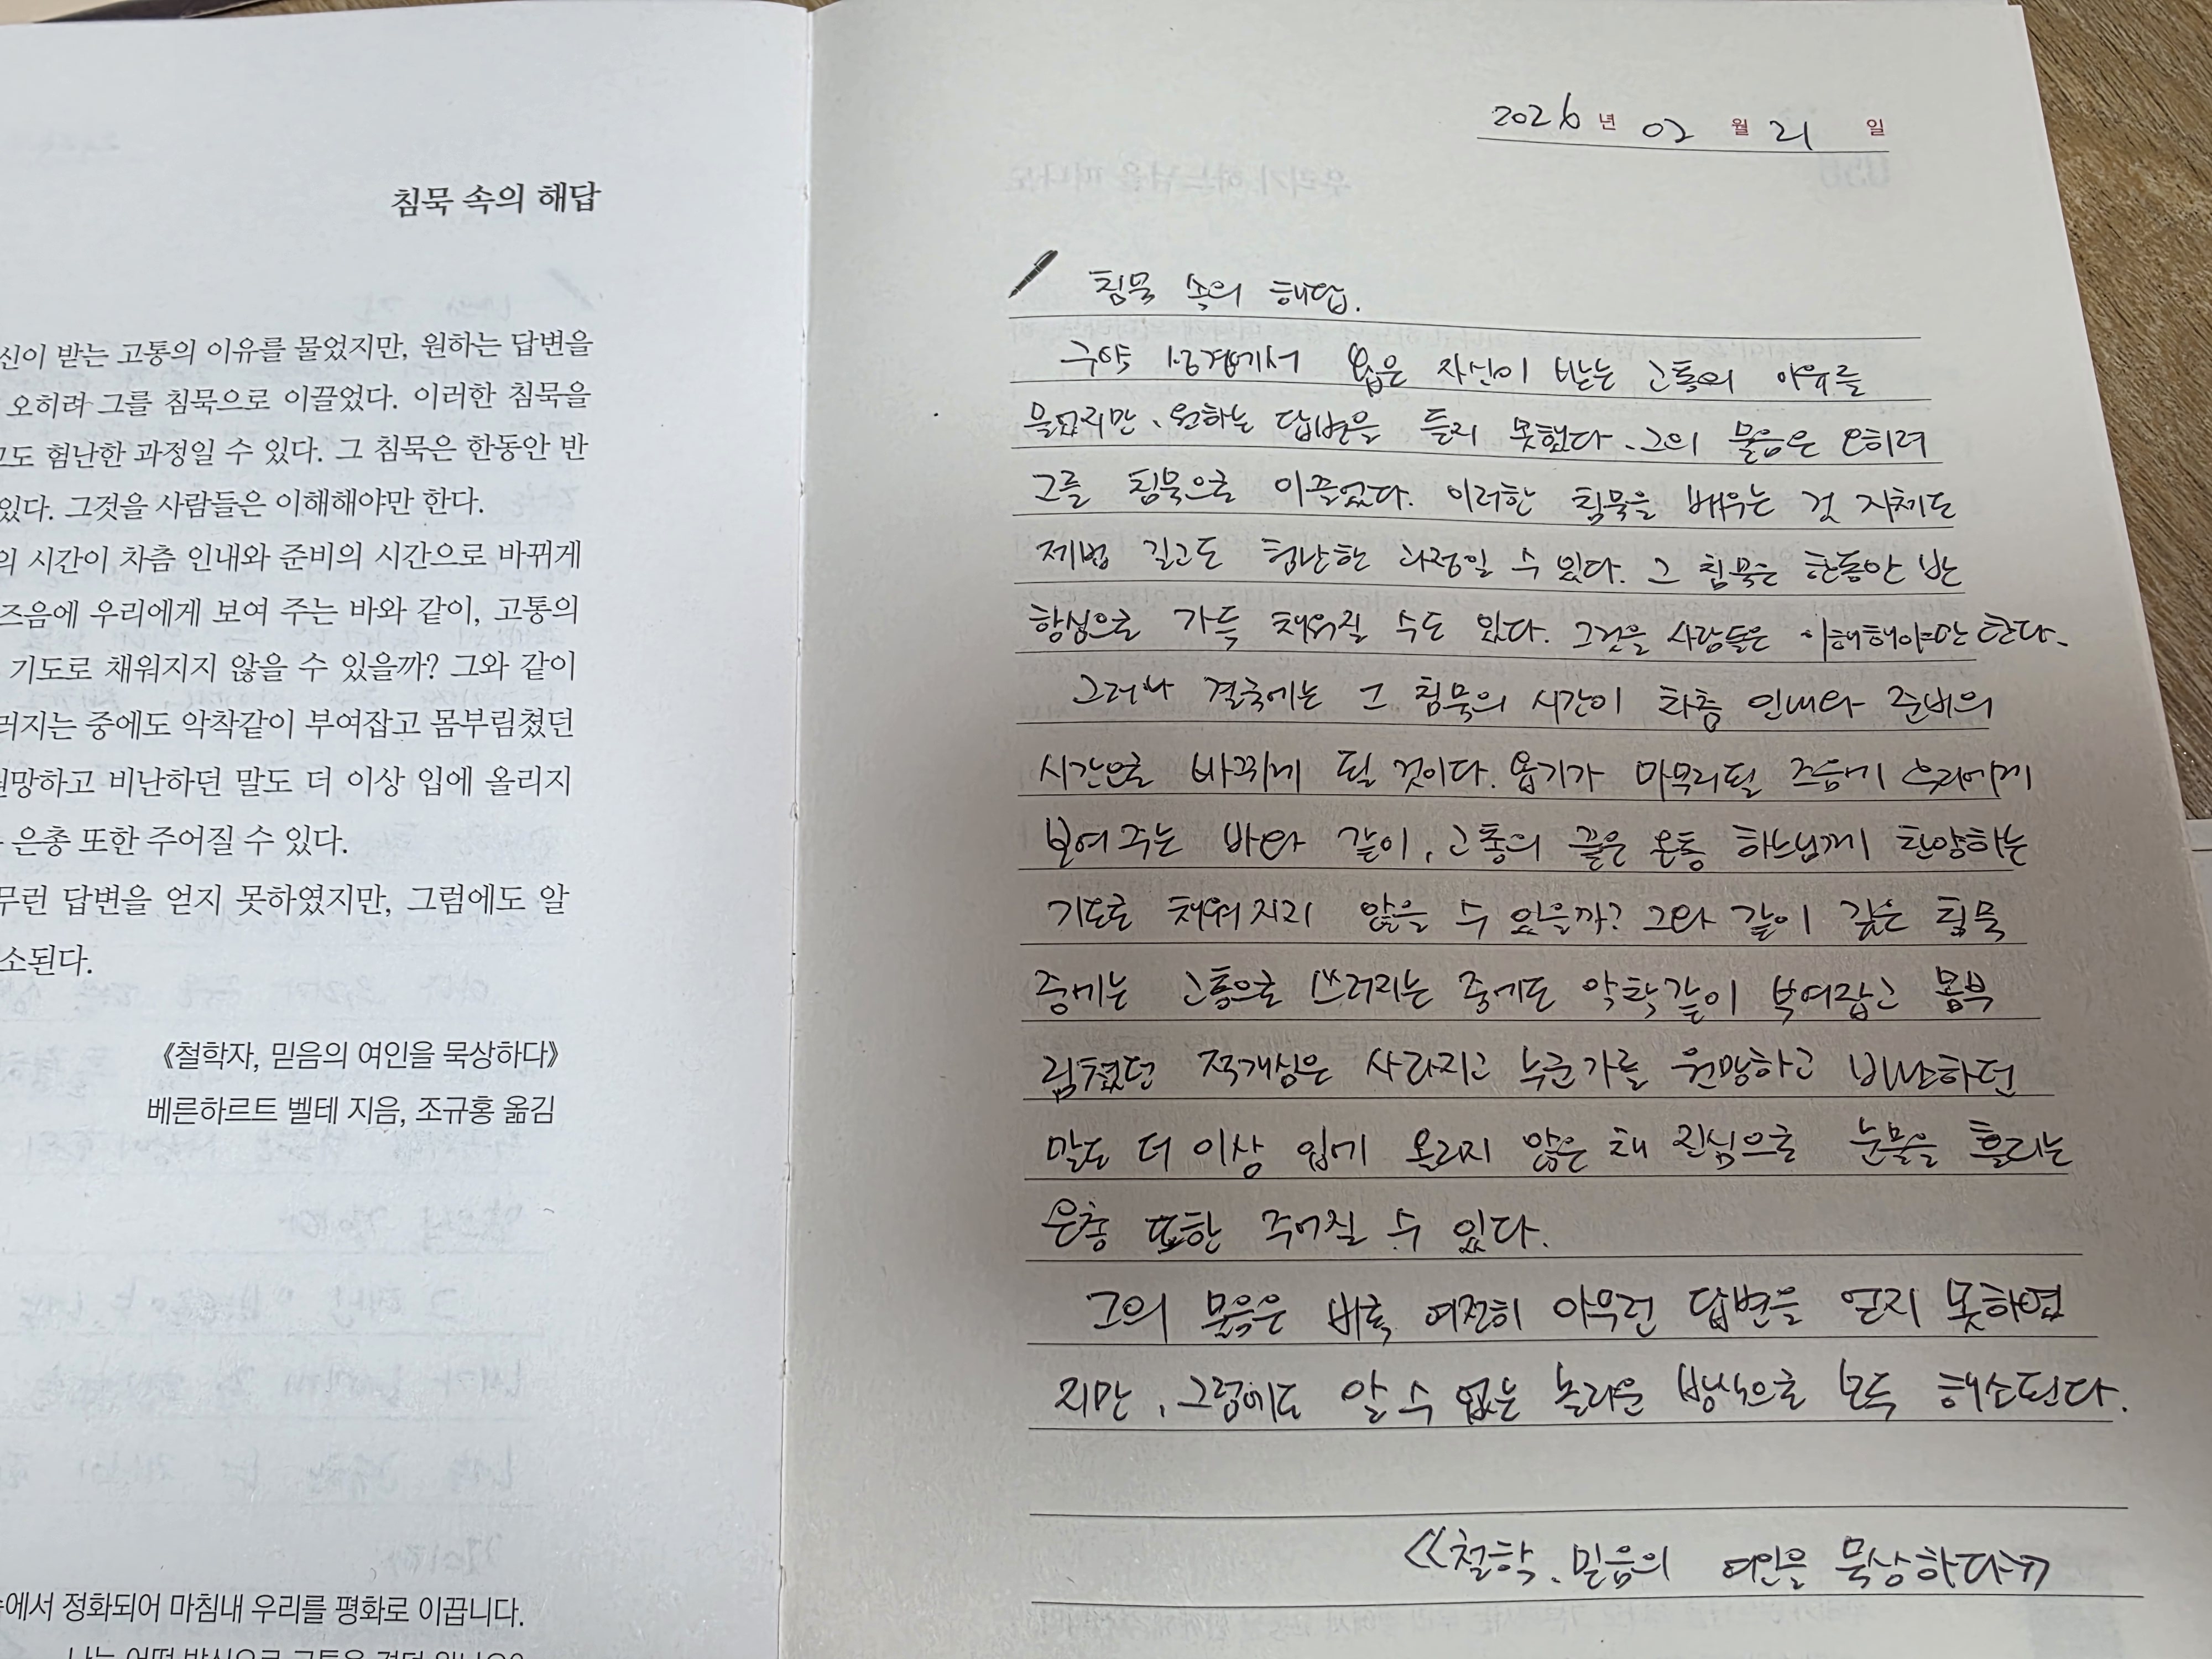 침묵 속의 해답
신이 받는 고통의 이유를 물었지만, 원하는 답변을
오히려 그를 침묵으로 이끌었다. 이러한 침묵을
고도 험난한 과정일 수 있다. 그 침묵은 한동안 반
있다. 그것을 사람들은 이해해야만 한다.
의 시간이 차츰 인내와 준비의 시간으로 바뀌게
즈음에 우리에게 보여 주는 바와 같이, 고통의
기도로 채워지지 않을 수 있을까? 그와 같이
러지는 중에도 악착같이 부여잡고 몸부림쳤던
원망하고 비난하던 말도 더 이상 입에 올리지
은총 또한 주어질 수 있다.
무런 답변을 얻지 못하였지만, 그럼에도 알
소된다.
《철학자, 믿음의 여인을 묵상하다》
베른하르트 벨테 지음, 조규홍 옮김
에서 정화되어 마침내 우리를 평화로 이끕니다.
2026년 02월 21일
침묵 속의 해답.
구약 성경에서 욥은 자신이 받는 고통의 이유를
물었지만, 원하는 답변을 듣지 못했다. 그의 물음은 오히려
그를 침묵으로 이끌었다. 이러한 침묵을 배우는 것 자체도
제법 길고도 험난한 과정일 수 있다. 그 침묵은 한동안 반
항심으로 가득 채워질 수도 있다. 그것을 사람들은 이해해야만 한다.
그러나 결국에는 그 침묵의 시간이 차츰 인내와 준비의
시간으로 바뀌게 될 것이다. 욥기가 마무리될 즈음에 우리에게
보여 주는 바와 같이, 고통의 끝은 온통 하느님께 찬양하는
기도로 채워지지 않을 수 있을까? 그와 같이 깊은 침묵
중에는 고통으로 쓰러지는 중에도 악착같이 부여잡고 몸부
림쳤던 적개심은 사라지고 누군가를 원망하고 비난하던
말도 더 이상 입에 올리지 않은 채 진심으로 눈물을 흘리는
은총 또한 주어질 수 있다.
그의 물음은 비록 여전히 아무런 답변을 얻지 못하였
지만, 그럼에도 알 수 없는 놀라운 방식으로 모두 해소된다.
<<철학, 믿음의 여인을 묵상하다>>